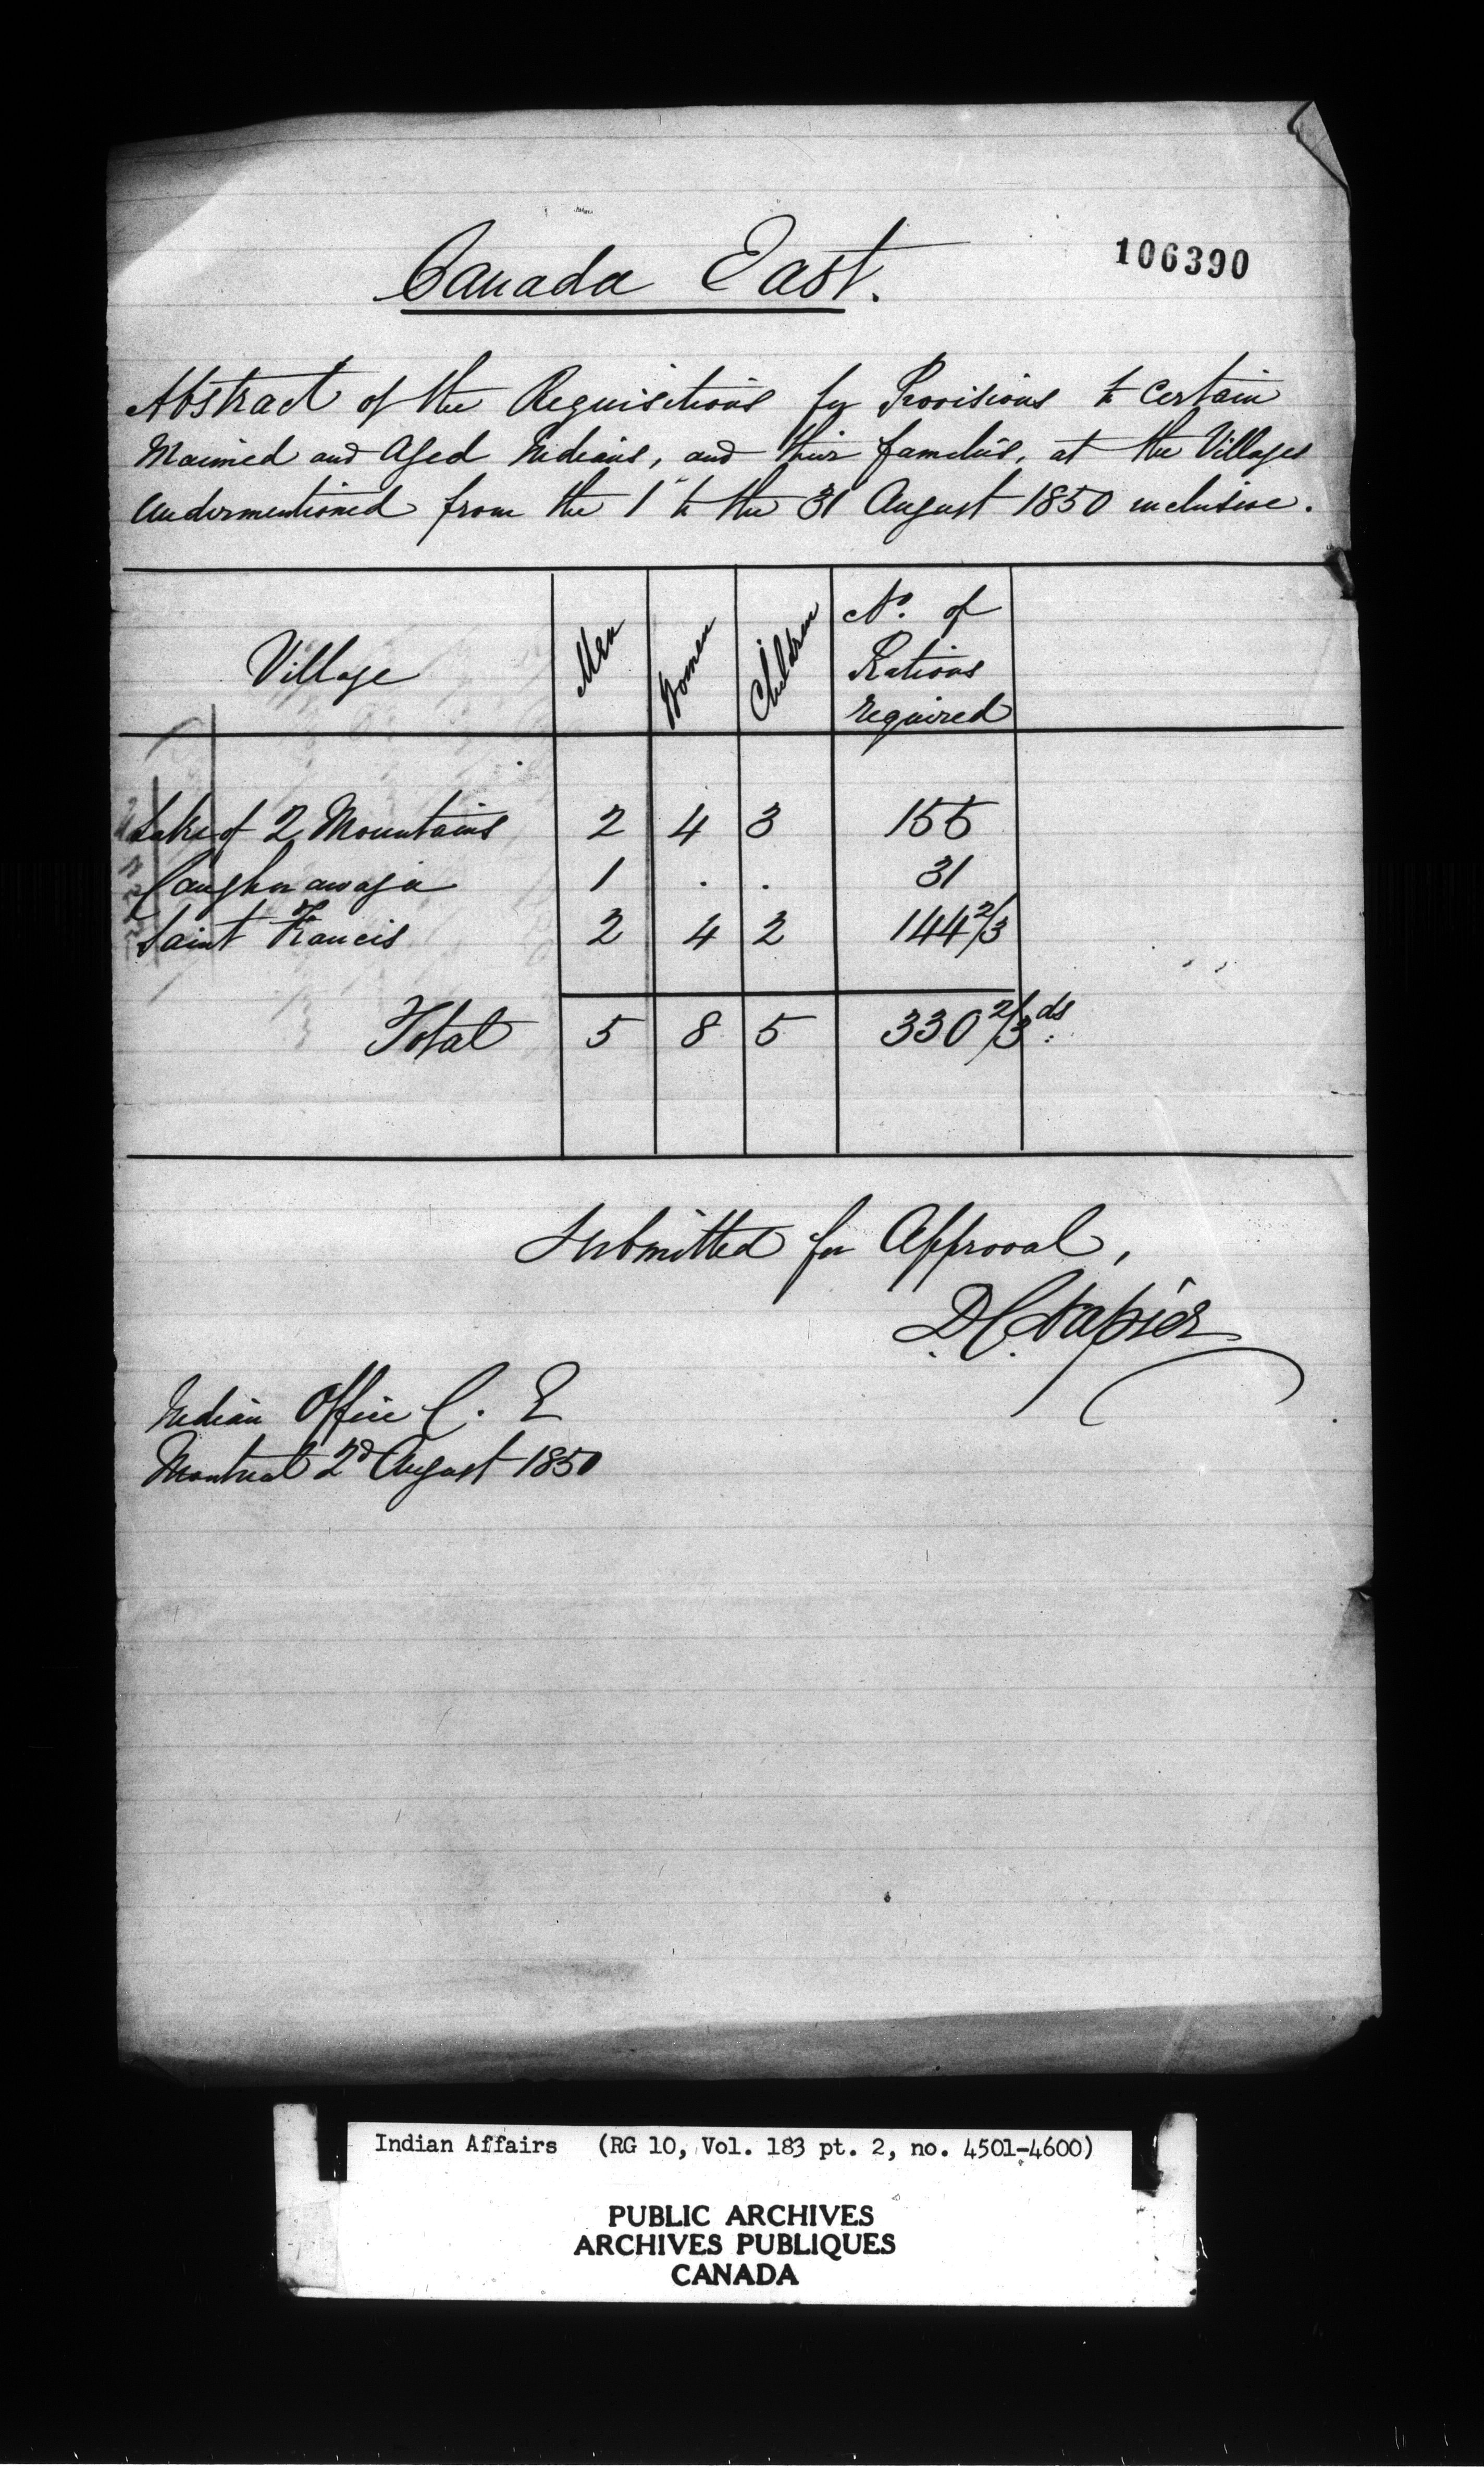 106390
Canada East.
Abstract of the Requisitions for Provisions to certain
Maimed and Aged Indians, and their families, at the Villages
undermentioned from the 1st to the 31 August 1850 inclusive.
Village Men Women Children No. of Rations required
Lake of 2 Mountains 2 4 3 155
Caughnawaga 1 . . 31
Saint Francis 2 4 2 144 2/3
Total 5 8 5 330 2/3ds
Submitted for Approval,
D.C. Napier
Indian Office C. E
Montreal 2d August 1850
Indian Affairs (RG 10, Vol. 183 pt. 2, no. 4501-4600)
PUBLIC ARCHIVES
ARCHIVES PUBLIQUES
CANADA